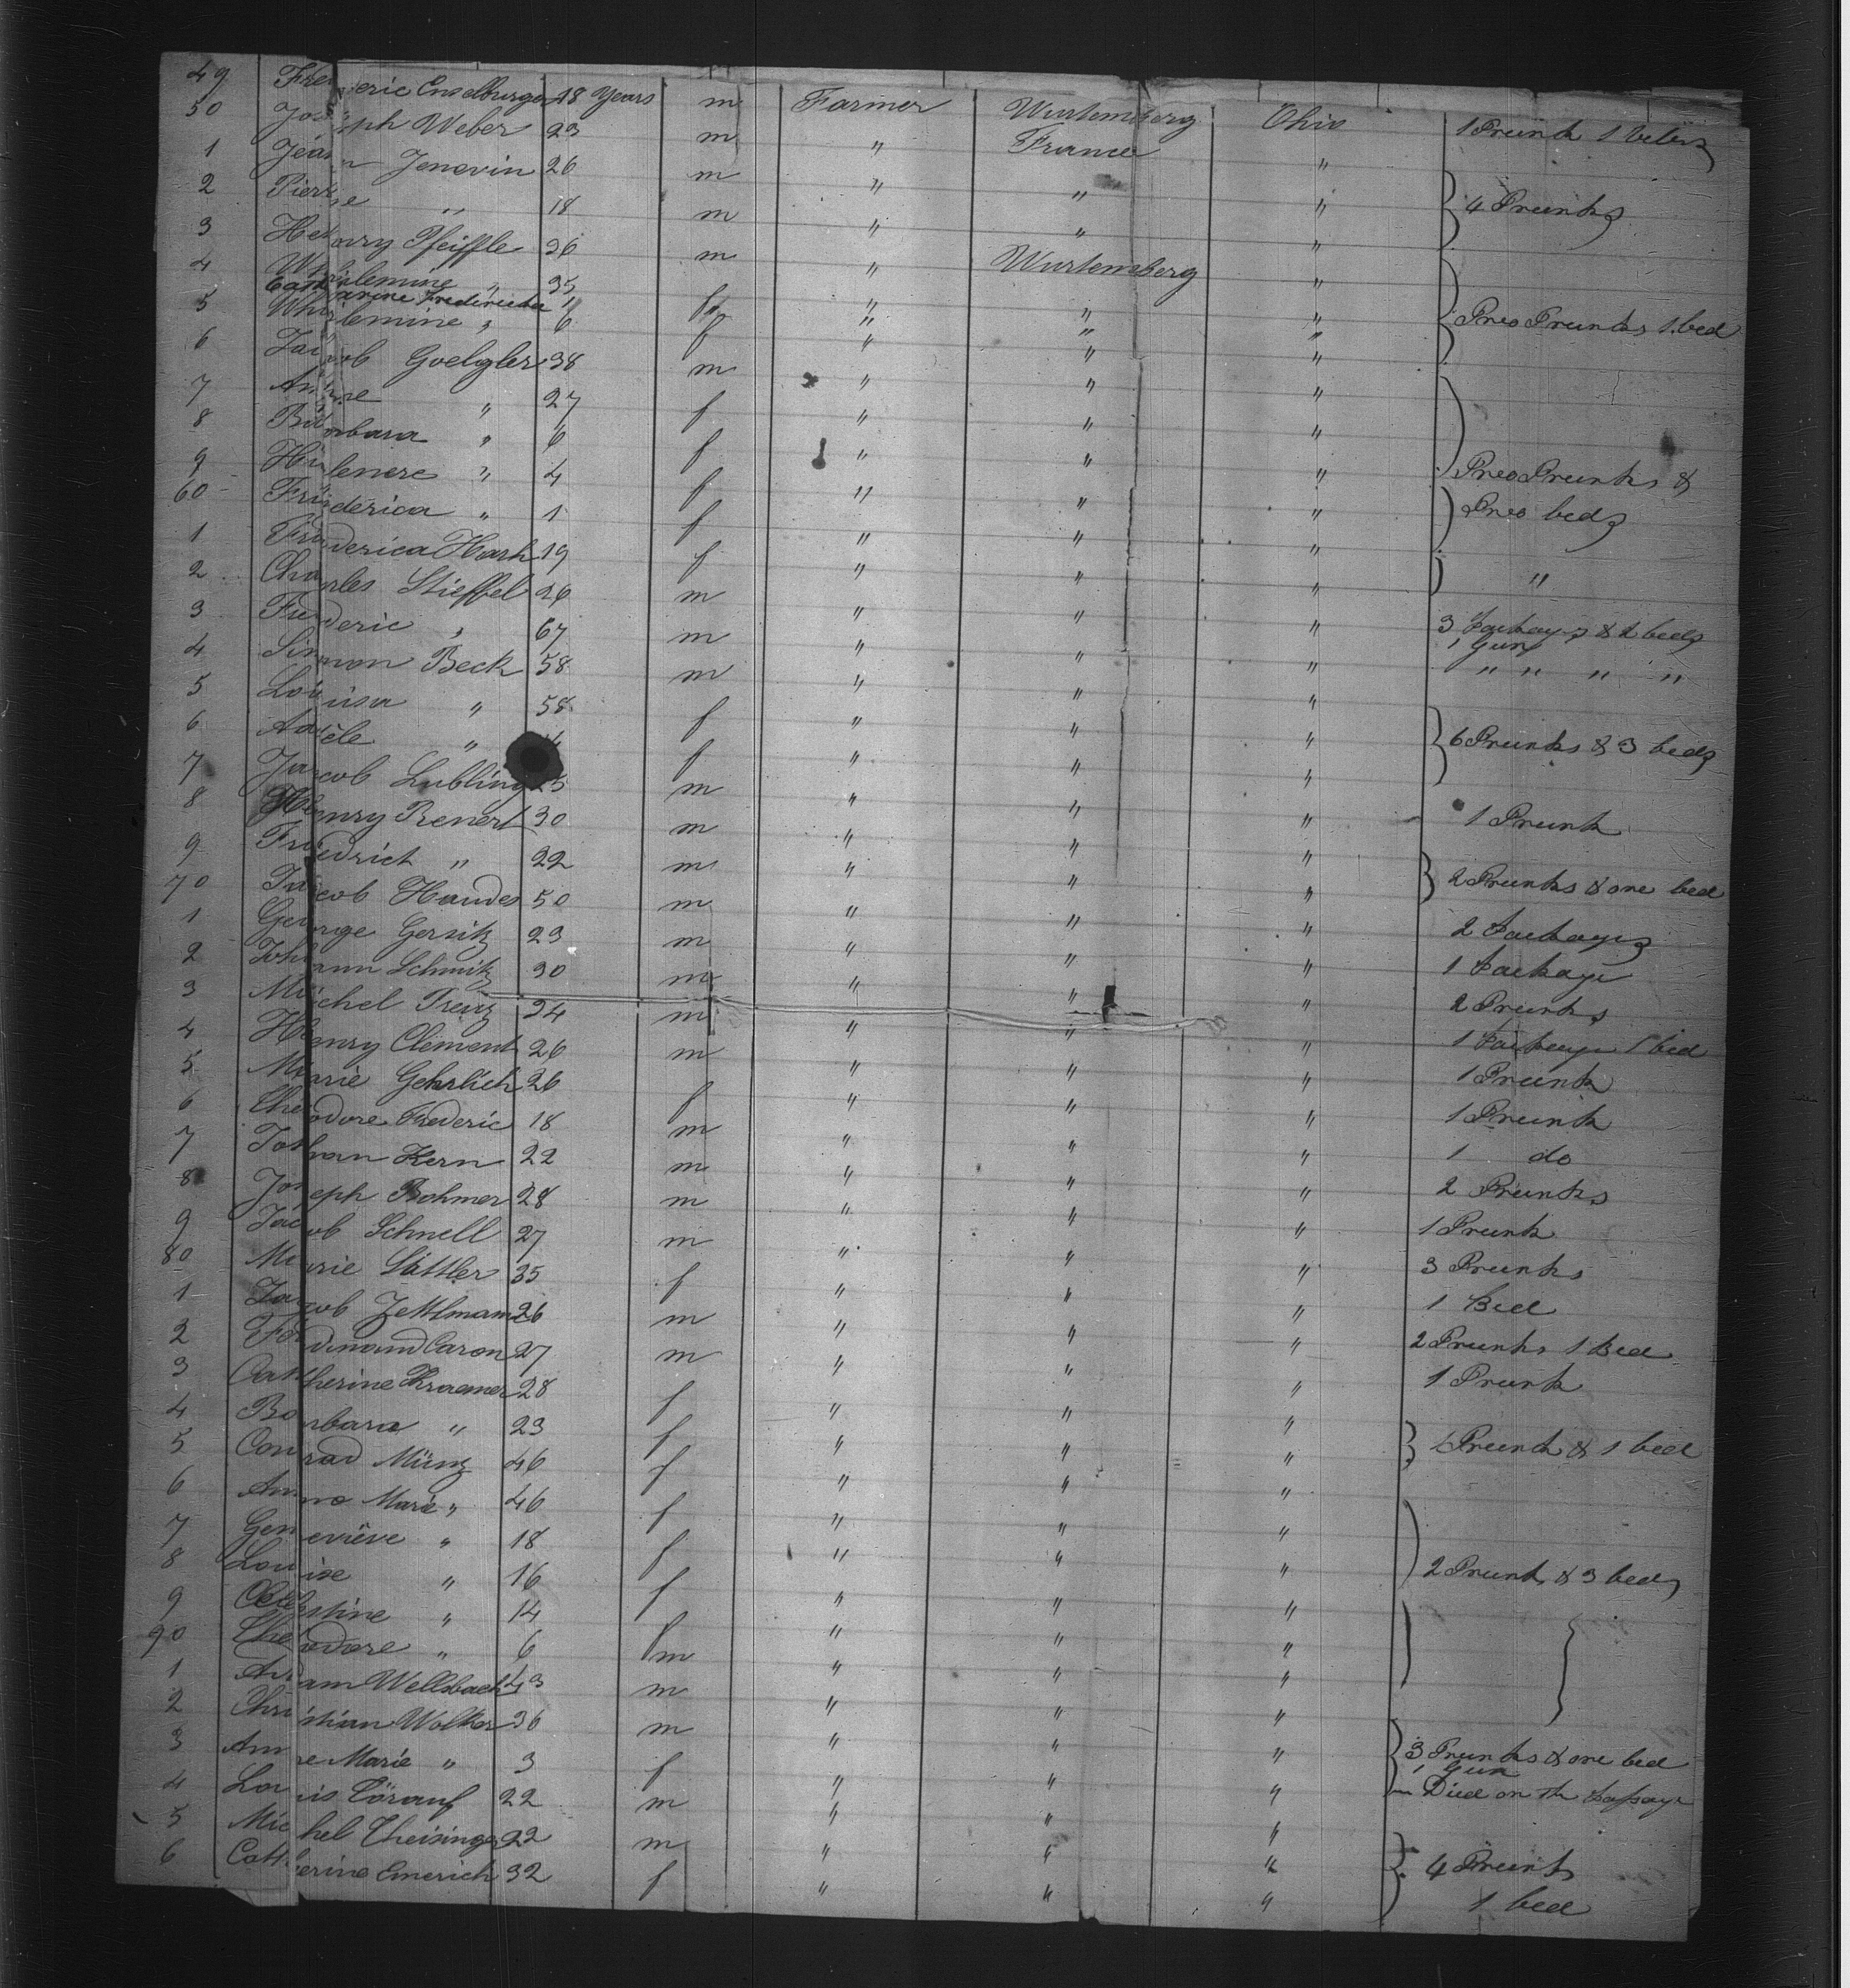 49 Frederic Enselburger 18 Years m Farmer Wurtemberg Ohio 1 Trunk 1
50 Joseph Weber 23 m " France "
1 Jean Jenevin 26 m " " " } 4 Trunks
2 Pierre " 18 m " " "
3 Henry Pfeiffle 26 m " Wurtemberg "
4 Whilemine " 35 " " "
Catharine Fredericka 1 f " " " } Two Trunks 1 bed
5 Whilemine " 6 f " " "
6 Jacob Goelgler 38 m " " "
7 Anne " 27 f " " "
8 Barbara " 6 f " " "
9 " 4 f " " " Two Trunks &
60 Friederica " 1 f " " " Two beds
1 Frederica Harh 19 f " " " "
2 Charles Stieffel 26 m " " " 3 Packages & 2 beds
1 Gun
3 Frederic " 67 m " " " " " " "
4 Simon Beck 58 m " " "
5 Louisa " 58 f " " " } 6 Trunks & 3 beds
6 Adèle " f " " "
7 Jacob Lubling 25 m " " " 1 Trunk
8 Henry Renert 30 m " " "
9 Friedrich " 22 m " " " } 2 Trunks & one bed
70 Jacob Haudes 50 m " " " 2 Packages
1 George Gersitz 23 m " " " 1 Package
2 Johann Schmitz 30 m " " " 2 Trunks
3 Michel Treuz 24 m " " " 1 Package 1 bed
4 Henry Clement 26 m " " " 1 Trunk
5 Marie Gehrlich 26 f " " " 1 Trunk
6 Theodore Frederic 18 m " " " 1 do
7 Johan Kern 22 m " " " 2 Trunks
8 Joseph Bohmer 28 m " " " 1 Trunk
9 Jacob Schnell 27 m " " " 3 Trunks
80 Marie Sattler 35 f " " " 1 Bed
1 Jacob Zettlmann 26 m " " " 2 Trunks 1 Bed
2 Ferdinand Caron 27 m " " " 1 Trunk
3 Catherine Kraemer 28 f " " "
4 Barbara " 23 f " " " } 1 Trunk & 1 bed
5 Conrad Münz 46 f " " "
6 Anna Marie " 46 f " " "
7 Genevieve " 18 f " " " 2 Trunks & 3 beds
8 Louise " 16 f " " "
9 Celestine " 14 f " " "
90 Theodore " 6 m " " "
1 Adam Wellsbach 43 m " " "
2 Christian Wolker 36 m " " " 3 Trunks & one bed
1 Gun
3 Anne Marie " 3 f " " " Died on the Passage
4 Louis Cörauf 22 m " " "
5 Michel Theisinger 22 m " " " } 4 Trunks
6 Catherine Emerich 32 f " " " 1 bed